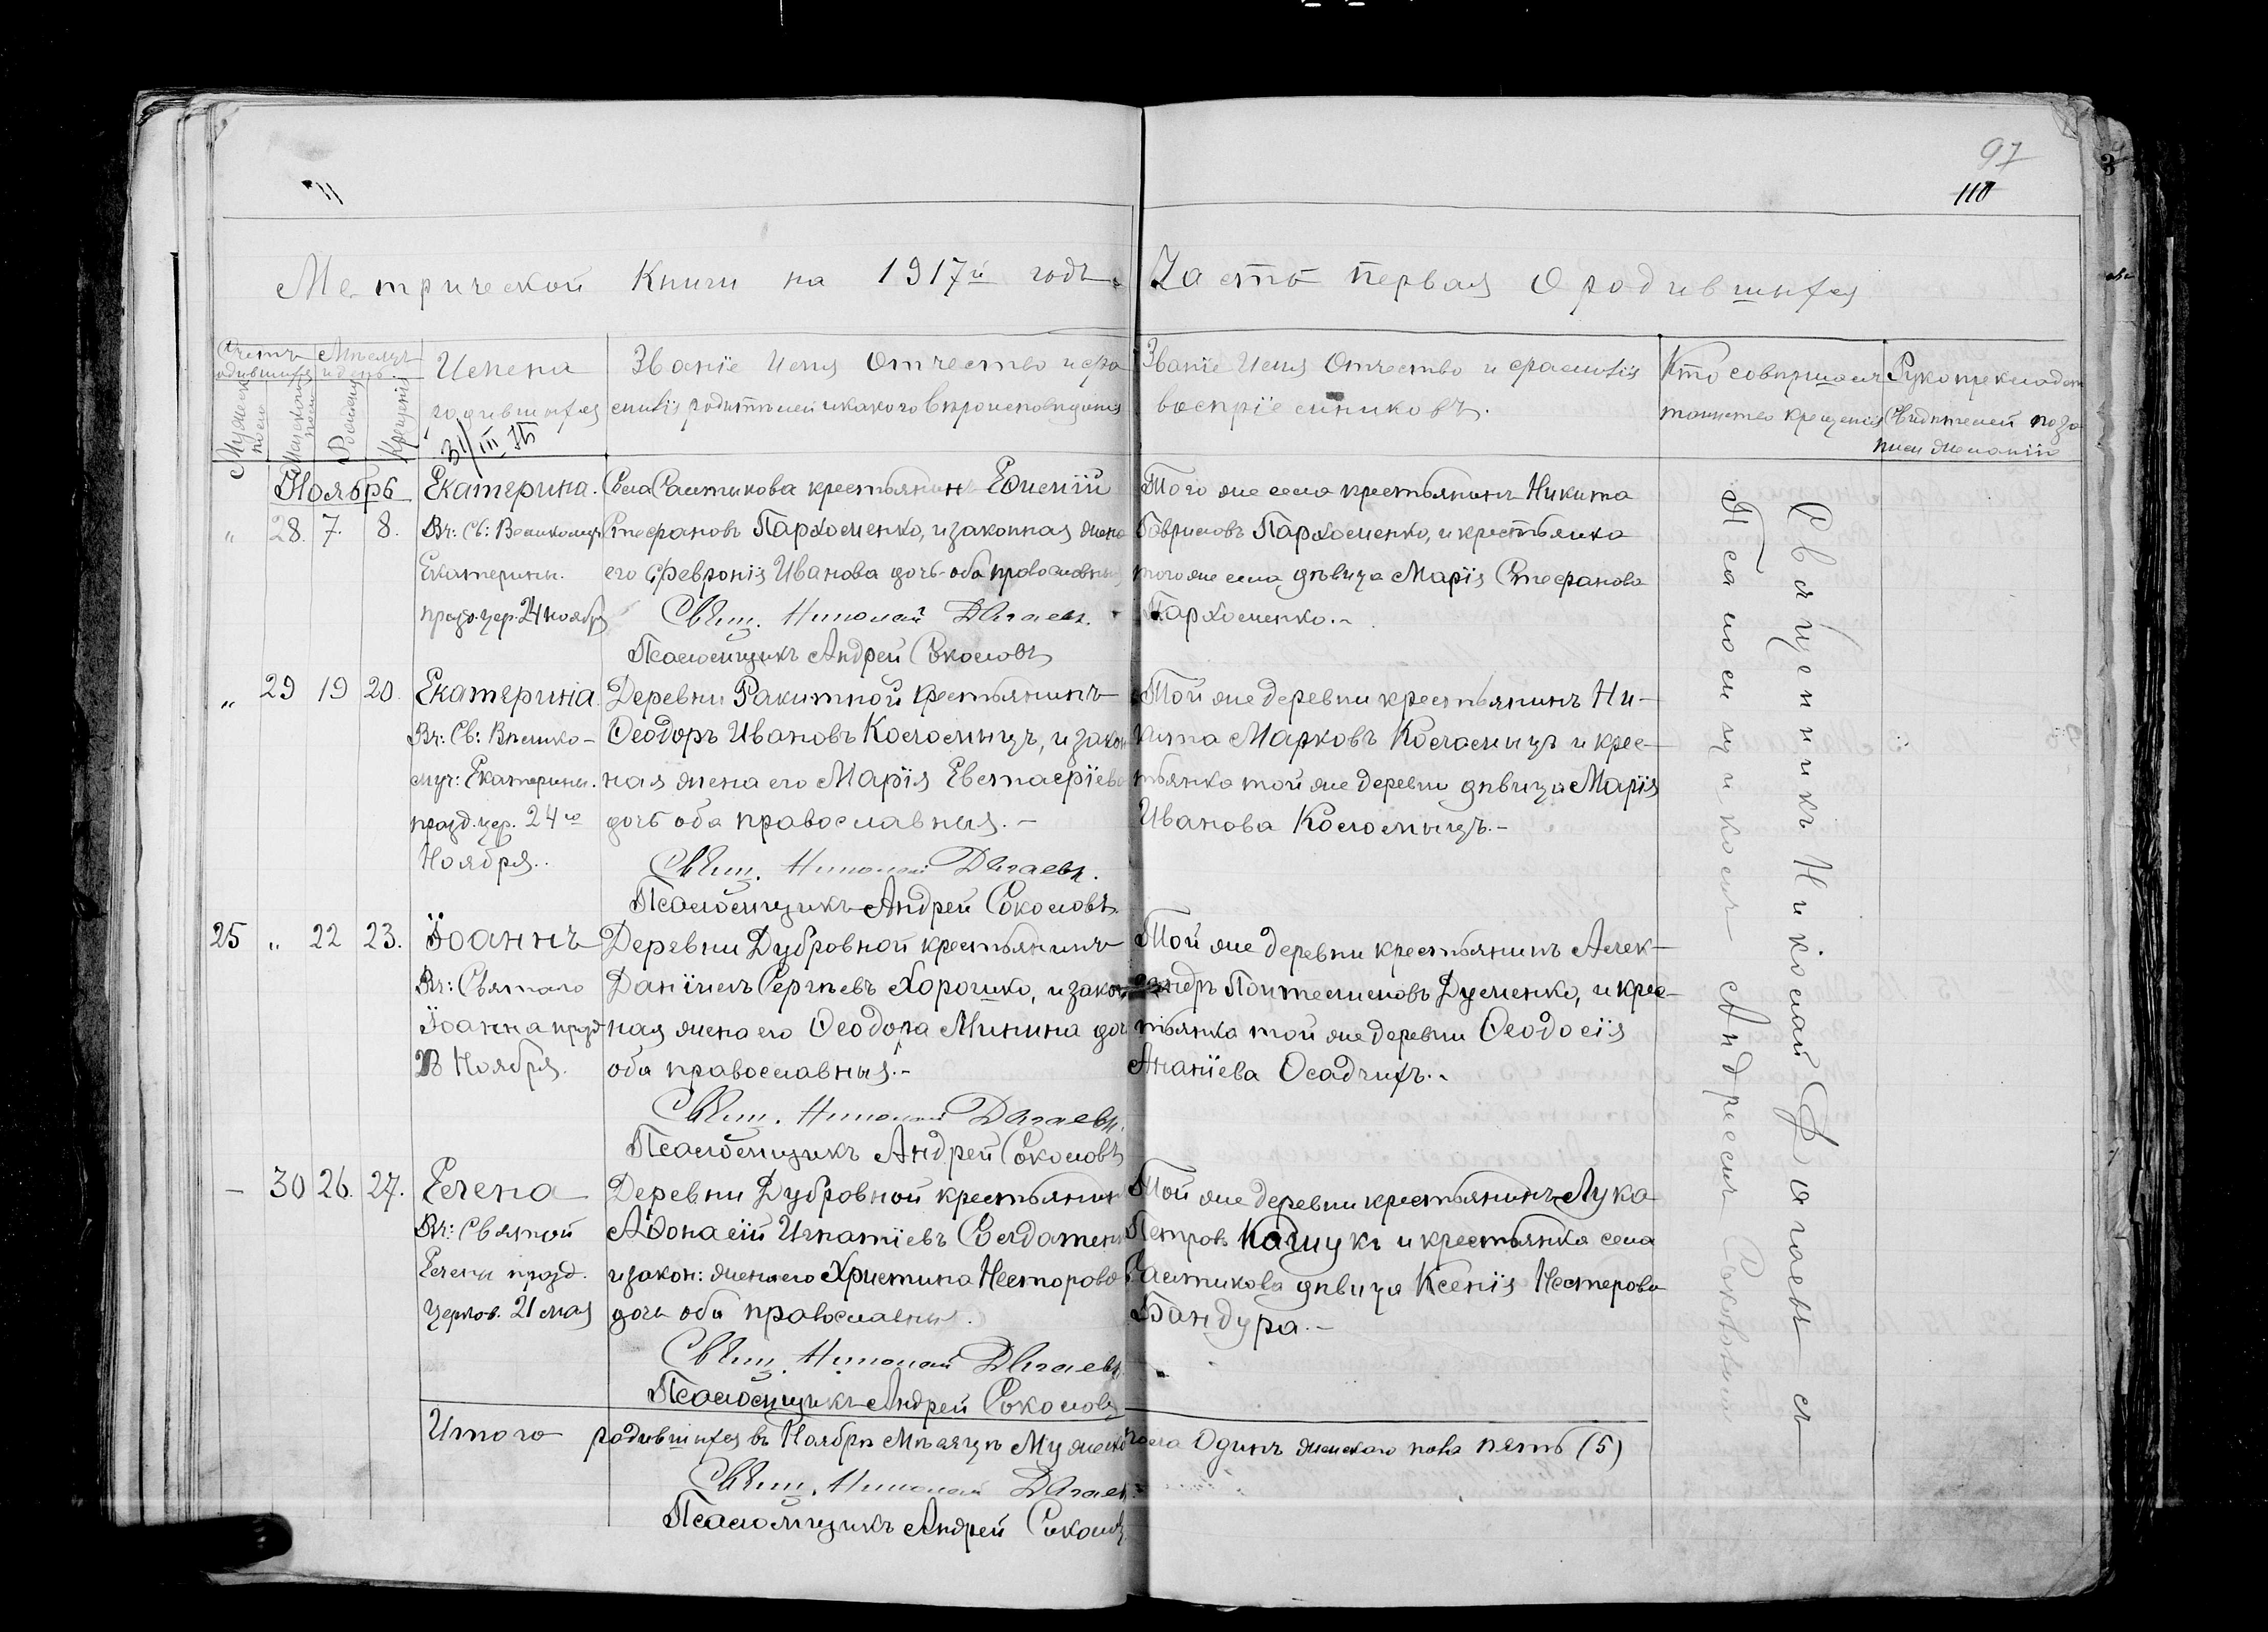 97
110
Метрической Книги на 1917й годъ.
Часть первая о родившихся
Счетъ родившихся
Мѣсяцъ и день
Мужеск. пола
Женскаго пола
Рожденія
Крещенія
Имена
родившихся
31/III
Званіе Имя Отчество и фа
милія родителей и какого вѣроисповѣданія
Званіе Имя Отчество и фамилія
воспріемниковъ.
Кто совершалъ
таинство крещенія
Рукоприкладст
свидѣтелей поза
писи желанію
Ноябрь
„ 28. 7. 8.
Екатерина.
Вч: Св: Великомуч
Екатерины.
празд. цер. 24 ноября
Села крестьянинъ Евѳимій
Стефановъ Пархоменко, и законная жена
его Февронія Иванова дочь оба православны
Свящ. Николай
Псаломщикъ Андрей Соколовъ
Того же села крестьянинъ Никита
Гавриловъ Пархоменко, и крестьянка
того же села дѣвица Марія Стефанова
Пархоменко.-
„ 29 19 20.
Екатерина
Вч: Св: Велико-
муч: Екатерины.
празд. цер. 24го
Ноября.
Деревни Ракитной крестьянинъ
Ѳеодоръ Ивановъ и закон
ная жена его Марія Евстафіева
дочь оба православныя.-
Свящ. Николай
Псаломщикъ Андрей Соколовъ.
Той же деревни крестьянинъ Ни-
кита Марковъ и крес-
тьянка той же деревни дѣвица Марія
Иванова
25 „ 22 23.
Іоаннъ
Вч: Святаго
Іоанна празд
Ноября.
Деревни Дубровной крестьянинъ
Даніилъ Сергѣевъ Хорошко, и закон
ная жена его Ѳеодора Минина доч
оба православныя.-
Свящ. Николай
Псаломщикъ Андрей Соколовъ
Той же деревни крестьянинъ Алек-
сандръ Пантелимоновъ и крес-
тьянка той же деревни Ѳеодосія
Ананіева Осадчихъ.-
- 30 26. 27.
Елена
Вч: Святой
Елены празд.
церков. 21 мая
Деревни Дубровной крестьянин
Аѳонасій Игнатіевъ Солдатенк
и закон: жена его Христина Несторова
дочь оба православныя.
Свящ. Николай
Псаломщикъ Андрей Соколовъ
Той же деревни крестьянинъ Лука
Петровъ и крестьянка села
дѣвица Ксенія Нестерова
Бандура.-
Священникъ Николай
Псаломщикомъ Андреемъ
Итого родившихся въ Ноябрѣ Мѣсяцѣ Мужеского пола Одинъ женскаго пола пять (5)
Свящ. Николай
Псаломщикъ Андрей Соколовъ